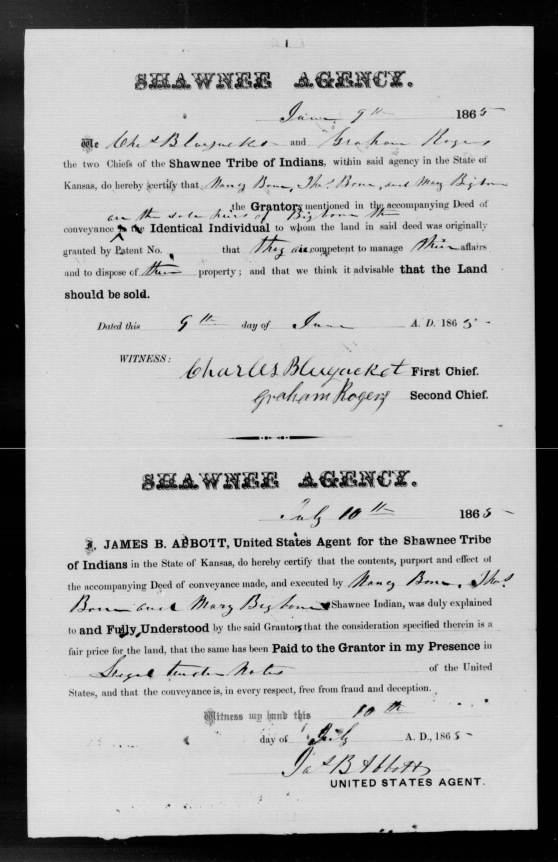 1
SHAWNEE AGENCY.
June 9th 1865
We Chas Bluejacket and Graham Rogers
the two Chiefs of the Shawnee Tribe of Indians, within said agency in the State of
Kansas, do hereby certify that Nancy Bone, Thos. Bone, and Mary Bigbone
the Grantors mentioned in the accompanying Deed of
are the sole heirs of Bigbone the
conveyance is the Identical Individual to whom the land in said deed was originally
granted by Patent No. that they are competent to manage their affairs
and to dispose of their property; and that we think it advisable that the Land
should be sold.
Dated this 9th day of June A. D. 1865
WITNESS:
Charles Bluejacket First Chief.
Graham Rogers Second Chief.
SHAWNEE AGENCY.
July 10th 1865
I, JAMES B. ABBOTT, United States Agent for the Shawnee Tribe
of Indians in the State of Kansas, do hereby certify that the contents, purport and effect of
the accompanying Deed of conveyance made, and executed by Nancy Bone, Thos.
Bone and Mary Bigbone Shawnee Indian, was duly explained
to and Fully Understood by the said Grantors that the consideration specified therein is a
fair price for the land, that the same has been Paid to the Grantor in my Presence in
Legal tender Notes of the United
States, and that the conveyance is, in every respect, free from fraud and deception.
Witness my hand this 10th
day of July A. D., 1865
Jas B Abbott
UNITED STATES AGENT.